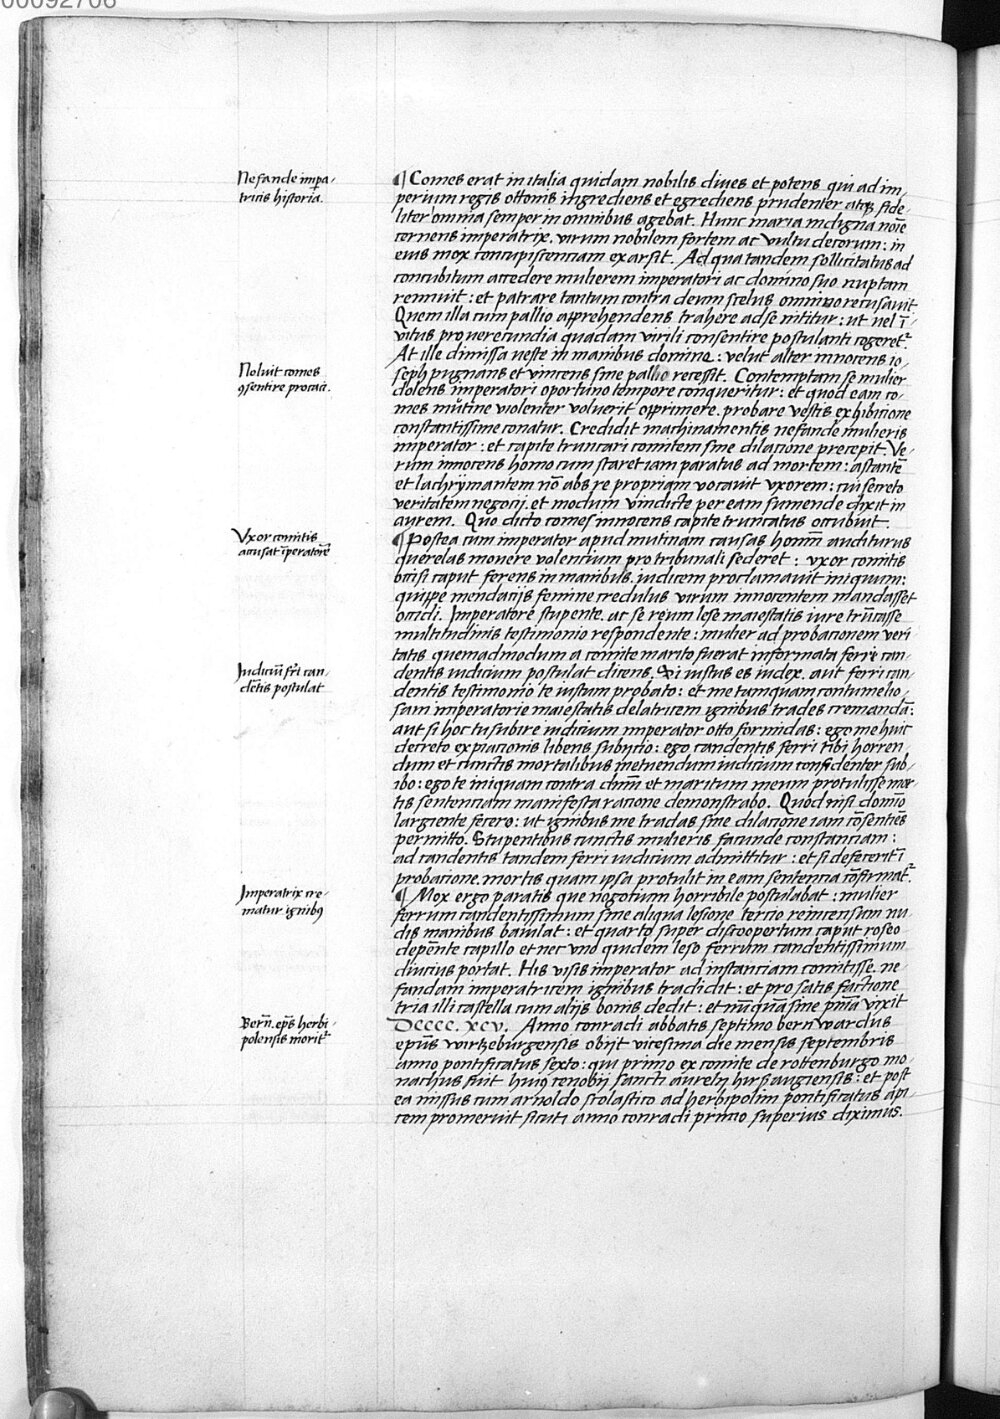 00092706
Nefande impa-
tricis historia.
¶ Comes erat in italia quidam nobilis diues et potens qui ad im-
perium regis ottonis ingrediens et egrediens prudenter atqz fide-
liter omnia semper in omnibus agebat. Hunc maria indigna noīe
cernens imperatrix, virum nobilem fortem ac vultu decorum: in
eius mox concupiscenciam exarsit. Ad qua tandem sollicitatus ad
concubitum accedere mulierem imperatori ac domino suo nuptam
rennuit: et patrare tantum contra deum scelus omnino recusauit.
Quem illa cum pallio apprehendens trahere ad se nititur: ut vel ī-
vitus pro verecundia quadam virili consentire postulanti cogeret᷑.
At ille dimissa veste in manibus domine: velut alter innocens io-
Noluit comes
ꝯsentire procaci.
seph pugnans et vincens sine pallio recessit. Contemptam se mulier
dolens imperatori oportuno tempore conqueritur: et quod eam co-
mes mutine violenter voluerit opprimere, probare vestis exhibicione
constantissime conatur. Credidit machinamentis nefande mulieris
imperator: et capite truncari comitem sine dilacione precepit. Ve-
rum innocens homo cum staret iam paratus ad mortem: astantē
et lachrÿmantem nō abs re propriam vocauit vxorem: cui secreto
veritatem negocij, et modum vindicte per eam sumende dixit in
aurem. Quo dicto comes innocens capite truncatus occubuit.
Vxor comitis
accusat īperatorē
¶ Postea cum imperator apud mutinam causas hominū auditurus
querelas mouere volencium pro tribunali sederet: vxor comitis
occisi caput ferens in manibus, iudicem proclamauit iniquum:
quippe mendacijs femine credulus virum innocentem mandasset
occidi. Imperatore stupente, ac se reum lese maiestatis iure trūcasse
multitudinis testimonio respondente: mulier ad probacionem veri-
tatis quemadmodum a comite marito fuerat informata ferri can-
Iudiciū fr̄i can-
dētis postulat
dentis iudicium postulat dicens. Si iustus es iudex, aut ferri can-
dentis testimonio te iustum probato: et me tamquam contumelio-
sam imperatorie maiestatis delatricem ignibus trades cremandā:
aut si hoc tu subire iudicium imperator otto formidas: ego me huic
decreto expiacionis libens subÿcio: ego candentis ferri tibi horren-
dum et cunctis mortalibus metuendum iudicium confidenter sub-
ibo: ego te iniquam contra dn̄m et maritum meum protulisse mor-
tis sentenciam manifesta racione demonstrabo. Quod nisi domīo
largiente fecero: ut ignibus me tradas sine dilacione iam cōsenciēs
permitto. Stupentibus cunctis mulieris facunde constanciam:
ad candentis tandem ferri iudicium admittitur: et si defecerit ī
probacione, mortis quam ipsa protulit in eam sentencia cōfirmat᷑.
Imperatrix cre-
matur ignibꝯ
¶ Mox ergo paratis que negotium horribile postulabat: mulier
ferrum candentissimum sine aliqua lesione tercio reincensum nu-
dis manibus baiulat: et quarto super discoopertum caput roseo
depente capillo et nec vno quidem leso ferrum candentissimum
diucius portat. His visis imperator ad instanciam comitisse, ne-
fandam imperatricem ignibus tradidit: et pro satis factione
tria illi castella cum alijs bonis dedit: et nūquā sine pn̄ia vixit
Bern̄. ep̄s herbi-
polensis morit᷑
Dcccc. xcv. Anno conradi abbatis septimo bernwardus
ep̄us wirtzeburgensis obijt vicesima die mensis septembris
anno pontificatus sexto: qui primo ex comite de rottenburgo mo-
nachus fuit huiꝯ cenobij sancti aurelij hirsaugiensis: et post
ea missus cum arnoldo scolastico ad herbipolim pontificatus api-
cem promeruit sicuti anno conradi primo superius diximus.